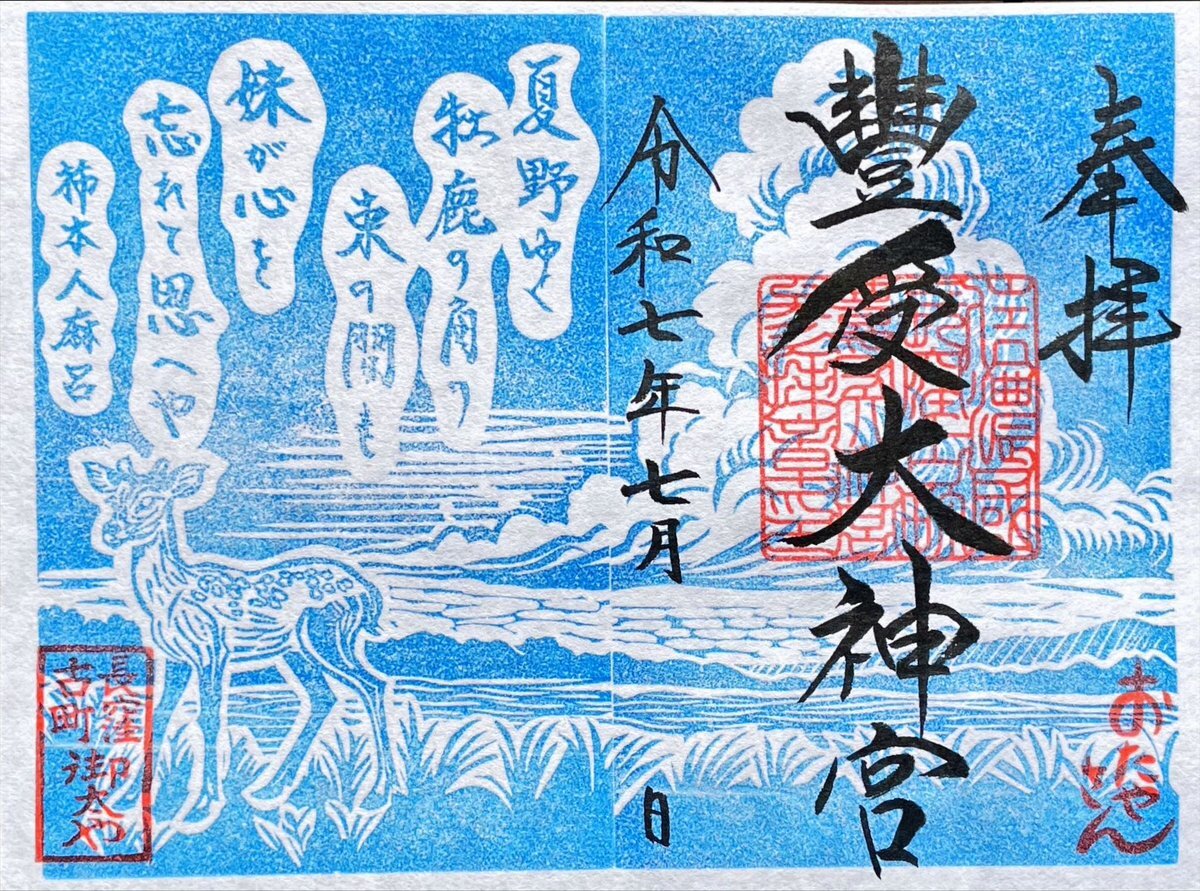 奉拝
豐受大神宮
令和七年七月 日
おたやさん
夏野ゆく
牡鹿の角の
束の間も
妹が心を
忘れて思へや
柿本人麻呂
長窪
古町